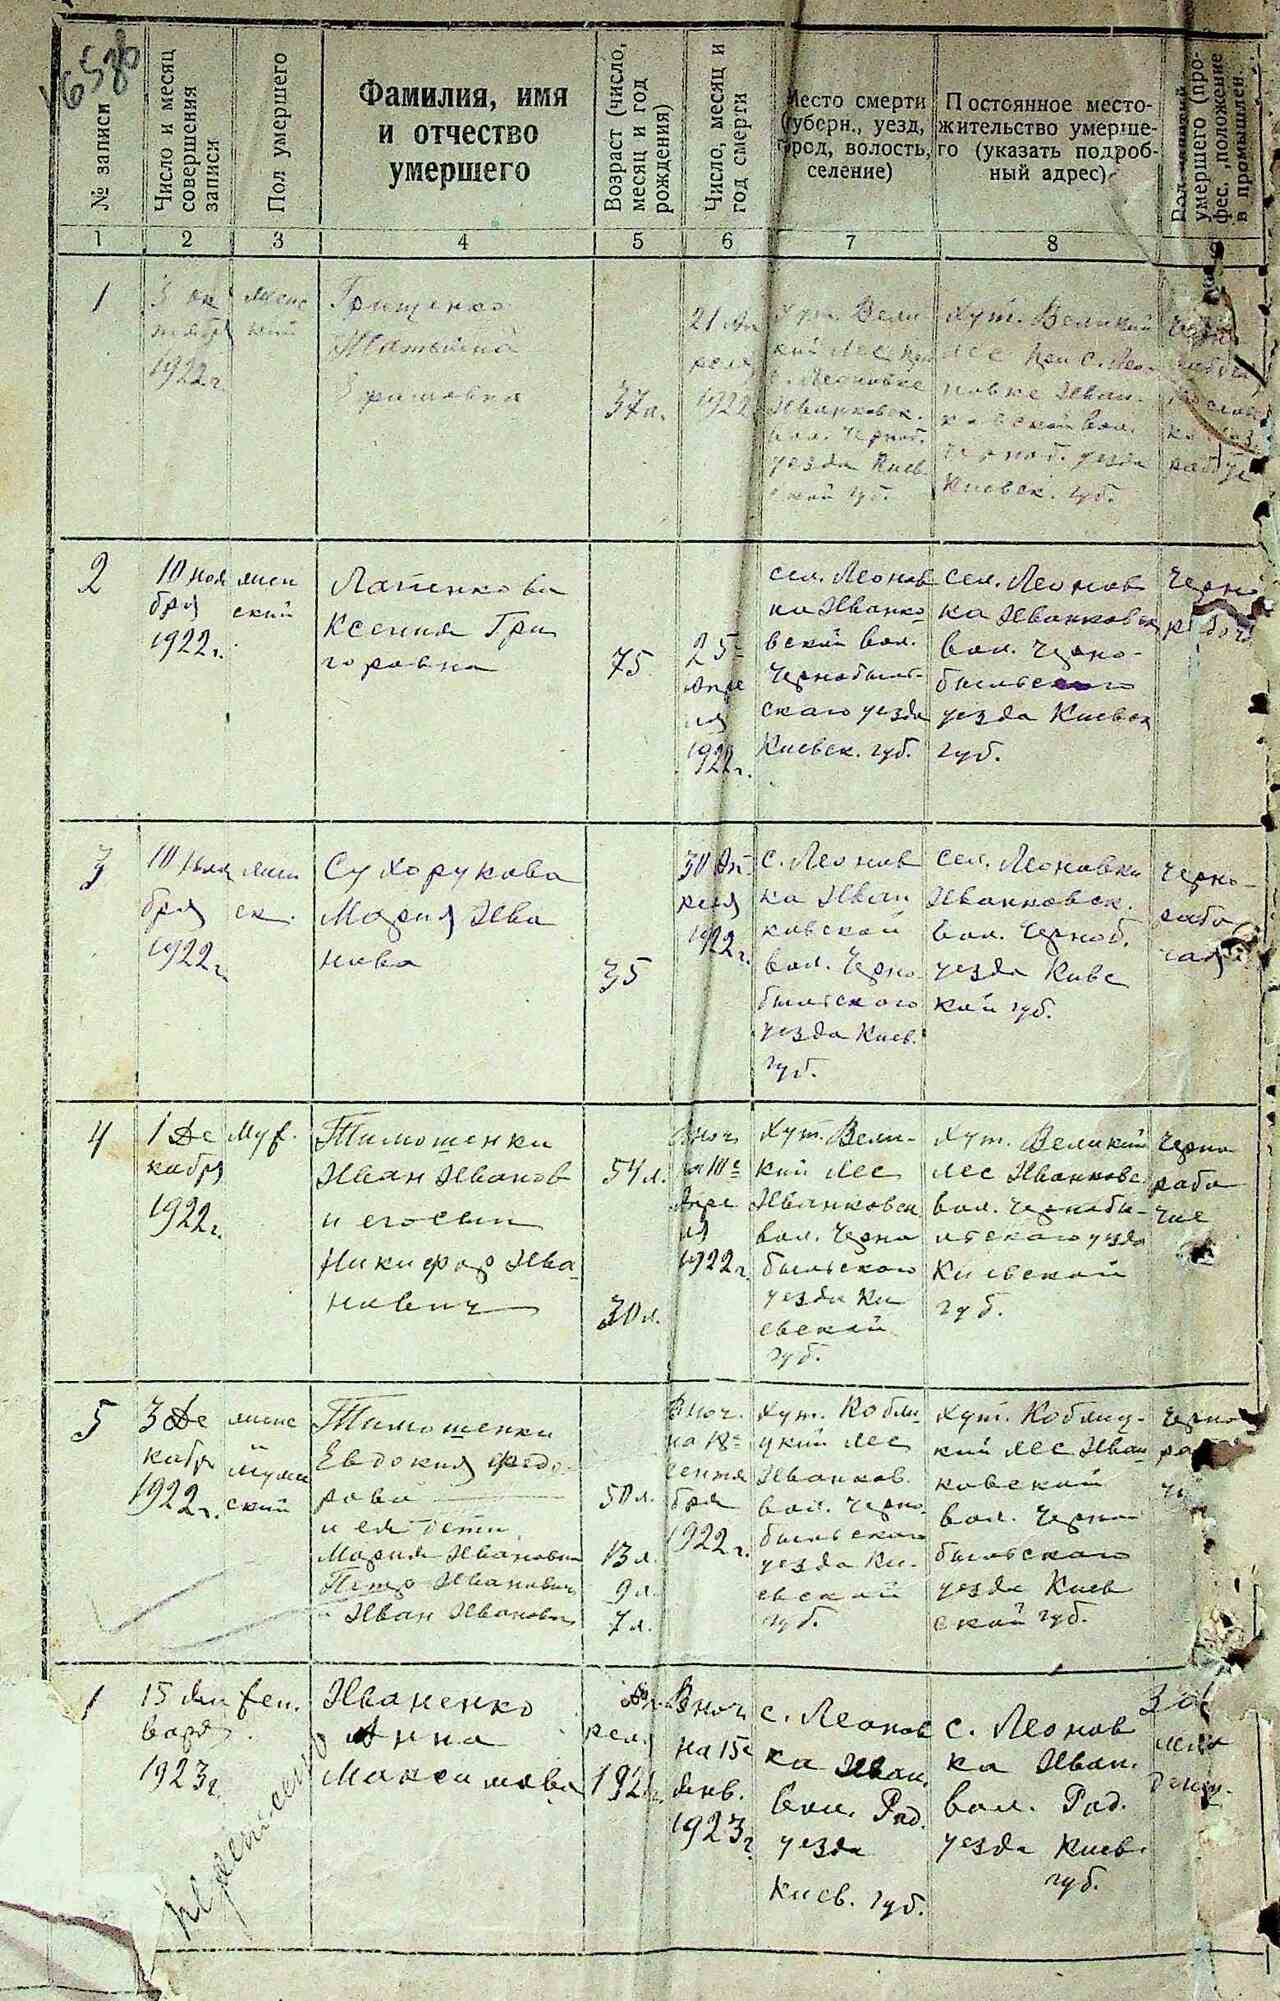 № записи
Число и месяц
совершения
записи
Пол умершего
Фамилия, имя
и отчество
умершего
Возраст (число,
месяц и год
рождения)
Число, месяц и
год смерти
Место смерти
(губерн., уезд,
город, волость,
селение)
Постоянное место-
жительство умерше-
го (указать подроб-
ный адрес)
умершего (про-
фес., положение
в промышлен.
1 2 3 4 5 6 7 8
1
3 ок
тября
1922г.
женс
кий
Грищенко
Татьяна
37л.
21 Ап
реля
1922
Хут. Вели
кий лес при
с. Леоновке
Иванковск.
вол. Черноб.
уезда Киев
ской губ.
Хут. Великий
лес при с. Лео-
новке Иван-
ковской вол.
Черноб. уезда
Киевск. губ.
2
10 ноя
бря
1922г.
жен
ский
Лапенкова
Ксения Гри
горовна
75
25
Апре
ля
1922г.
сел. Леонов
ка Иванко-
вской вол.
Чернобыль-
скаго уезда
Киевск. губ.
сел. Леонов
ка Иванковск
вол. Черно-
быльского
уезда Киевск
губ.
Черно
рабоч
3
10 ноя
бря
1922г.
жен
ск.
Сухорукова
Мария Ива
нова
35
30 Ап-
реля
1922г.
с. Леонов
ка Иван
ковской
вол. Черно
быльского
уезда Киев.
губ.
сел. Леоновка
Иванковск.
вол. Черноб.
уезда Киев
кой губ.
Черно-
рабо
чая
4
1 Де
кабря
1922г.
Муж.
Тимошенки
Иван Иванов
и его сын
Никифор Ива-
нович
54л.
30л.
В ноч
на 10е
Апре
ля
1922г.
Хут. Вели-
кий лес
Иванковск
вол. Черно
быльского
уезда Ки
евской
губ.
Хут. Великий
лес Иванковс
вол. Чернобы-
льского уезда
Киевской
губ.
Черно
рабо
чие
5
3 Де
кабр
1922г.
женс
й муж
ский
Тимошенки
Евдокия Федо-
рова
и ея дети
Мария Ивановна
Петр Иванович
и Иван Иванович
50л.
13л.
9л.
7л.
В ноч.
на 18е
сентя
бря
1922г.
хут. Кобли
цкий лес
Иванков.
вол. Черно
быльского
уезда Ки-
евской
губ.
хут. Коблиц-
кий лес Иван
ковской
вол. Черно
быльского
уезда Киев
ской губ.
Черно
1
15 Ян
варя
1923г.
жен.
Иваненко
Анна
Максимова
реля
В ноч
на 15е
Янв.
1923г.
с. Леонов
ка Иван.
вол. Рад.
уезда
Киев. губ.
с. Леонов
ка Иван.
вол. Рад.
уезда Киев.
губ.